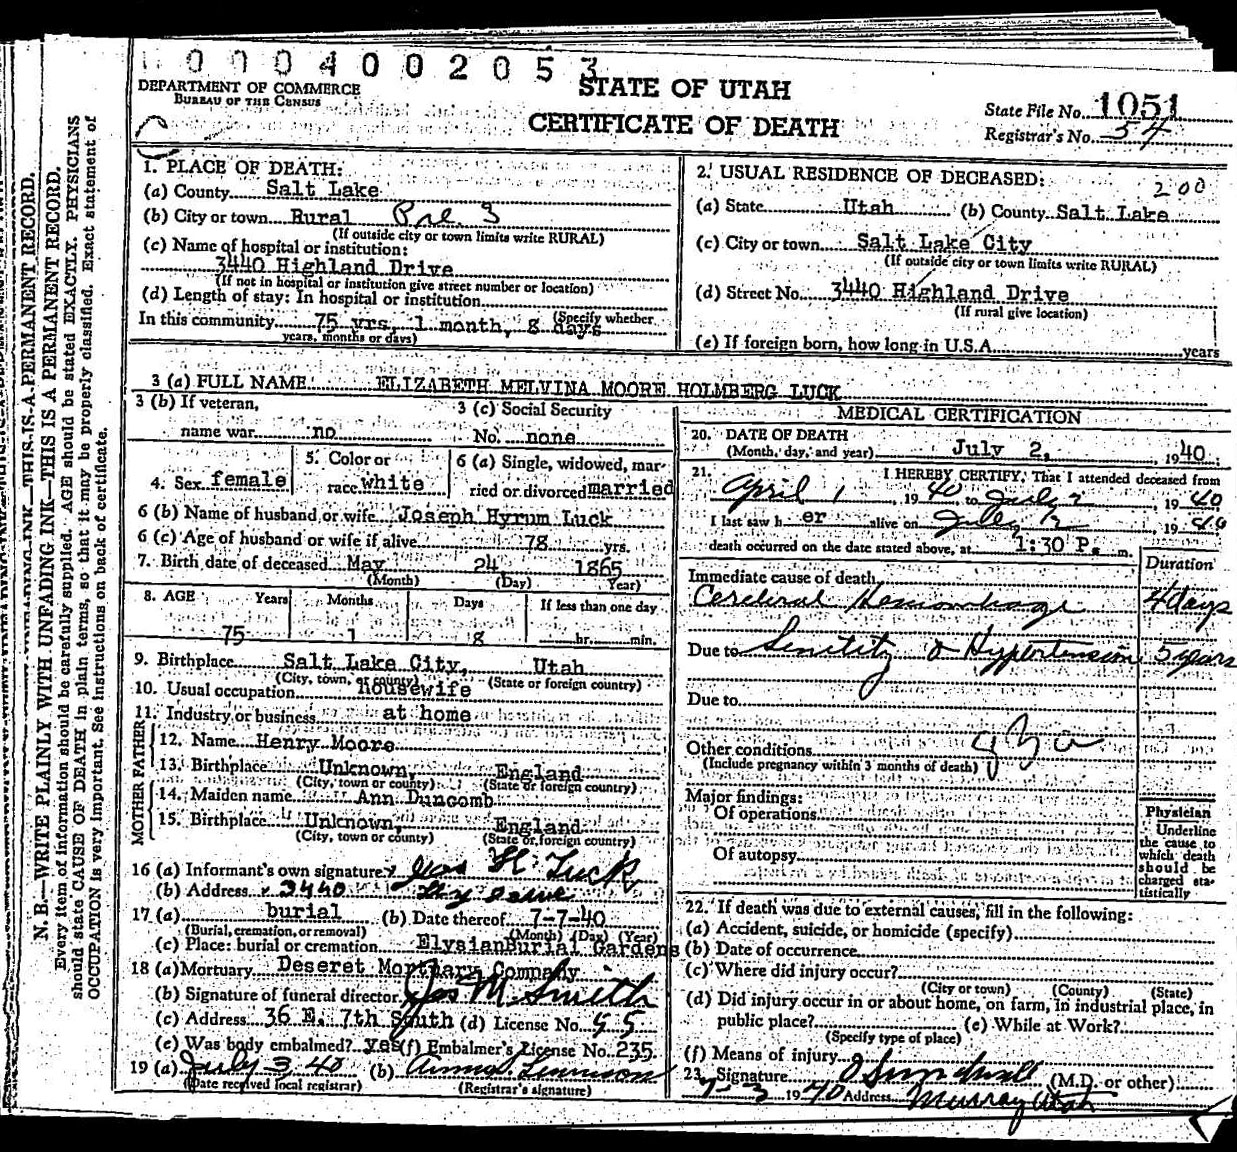 0 0 0 4 0 0 2 0 5 3
DEPARTMENT OF COMMERCE
BUREAU OF THE CENSUS
STATE OF UTAH
CERTIFICATE OF DEATH
State File No. 1051
Registrar's No. 54
1. PLACE OF DEATH:
(a) County Salt Lake
(b) City or town Rural Pre. 3
(If outside city or town limits write RURAL)
(c) Name of hospital or institution:
3440 Highland Drive
(If not in hospital or institution give street number or location)
(d) Length of stay: In hospital or institution
(Specify whether
In this community 75 yrs, 1 month, 8 days
years, months or days)
2. USUAL RESIDENCE OF DECEASED:
200
(a) State Utah (b) County Salt Lake
(c) City or town Salt Lake City
(If outside city or town limits write RURAL)
(d) Street No. 3440 Highland Drive
(If rural give location)
(e) If foreign born, how long in U.S.A. years
3 (a) FULL NAME ELIZABETH MELVINA MOORE HOLMBERG LUCK
3 (b) If veteran,
name war no
3 (c) Social Security
No. none
4. Sex female
5. Color or
race white
6 (a) Single, widowed, mar-
ried or divorced married
6 (b) Name of husband or wife Joseph Hyrum Luck
6 (c) Age of husband or wife if alive 78 yrs.
7. Birth date of deceased May 24 1865
(Month) (Day) Year)
8. AGE Years Months Days If less than one day
75 1 8 hr. min.
9. Birthplace Salt Lake City, Utah
(City, town, or county) (State or foreign country)
10. Usual occupation housewife
11. Industry or business at home
FATHER
12. Name Henry Moore
13. Birthplace Unknown, England
(City, town or county) (State or foreign country)
MOTHER
14. Maiden name Ann Duncomb
15. Birthplace Unknown, England
(City, town or county) (State or foreign country)
16 (a) Informant's own signature Jos H. Luck
(b) Address 3440
17 (a) burial (b) Date thereof 7-7-40
(Burial, cremation, or removal) (Month) (Day) (Year)
(c) Place: burial or cremation Elysian Burial Gardens
18 (a) Mortuary Deseret Mortuary Company
(b) Signature of funeral director Jos M. Smith
(c) Address 36 E. 7th South (d) License No. 55
(e) Was body embalmed? yes (f) Embalmer's License No. 235
19 (a) July 3 40 (b)
(Date received local registrar) (Registrar's signature)
MEDICAL CERTIFICATION
20. DATE OF DEATH
(Month, day, and year) July 2, 1940
21. I HEREBY CERTIFY, That I attended deceased from
April 1, 1940 to July 2, 1940
I last saw h er alive on July 2 1940
death occurred on the date stated above, at 1:30 P. m.
Duration
Immediate cause of death
Cerebral Hemorrhage 4 days
Due to Senility & Hypertension 5 years
Due to
Other conditions
(Include pregnancy within 3 months of death)
Major findings:
Of operations
Of autopsy
Physician
Underline
the cause to
which death
should be
charged sta-
tistically
22. If death was due to external causes, fill in the following:
(a) Accident, suicide, or homicide (specify)
(b) Date of occurrence
(c) Where did injury occur?
(City or town) (County) (State)
(d) Did injury occur in or about home, on farm, in industrial place, in
public place? (e) While at Work?
(Specify type of place)
(f) Means of injury
23. Signature (M.D. or other)
7-3 1940 Address Murray Utah
N. B.—WRITE PLAINLY WITH UNFADING INK—THIS IS A PERMANENT RECORD.
Every item of information should be carefully supplied. AGE should be stated EXACTLY. PHYSICIANS
should state CAUSE OF DEATH in plain terms, so that it may be properly classified. Exact statement of
OCCUPATION is very important. See instructions on back of certificate.